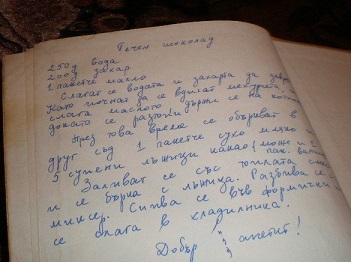 Течен шоколад
250g вода
200g захар
1 пакетче масло
Слагат се водата и захарта да
Като почнат да се вдигат мехурчета
слага маслото държи се на
докато се разтопи
През това време се объркват в
друг съд 1 пакетче сухо мляко
5 супени лъжици какао (може и 1 пак.
Заливат се със топлата
и се бърка с лъжица. Разбива се с
миксер. Сипва се във формички и
се слага в хладилника.
Добър апетит!